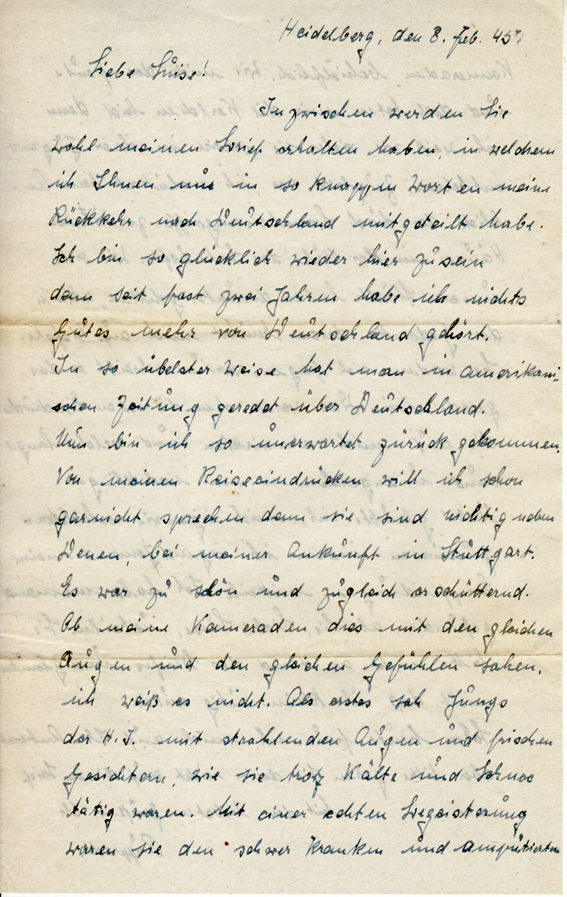 Heidelberg, den 8. Feb. 45.
Liebe Luise!
Inzwischen werden Sie
wohl meinen Brief erhalten haben, in welchem
ich Ihnen nur in so knappen Worten meine
Rückkehr nach Deutschland mitgeteilt habe.
Ich bin so glücklich wieder hier zu sein
denn seit fast zwei Jahren habe ich nichts
Gutes mehr von Deutschland gehört.
In so übelster Weise hat man in amerikani-
schen Zeitung geredet über Deutschland.
Nun bin ich so unerwartet zurück gekommen.
Von meinen Reiseeindrücken will ich schon
garnicht sprechen denn sie sind nichtig neben
Denen, bei meiner Ankunft in Stuttgart.
Es war zu schön und zugleich erschütternd.
Ob meine Kameraden dies mit den gleichen
Augen und den gleichen Gefühlen sahen,
ich weiß es nicht. Als erstes sah Jungs
der H.J. mit strahlenden Augen und frischen
Gesichtern, wie sie trotz Kälte und Schnee
tätig waren. Mit einer echten Begeisterung
waren sie den schwer Kranken und amputierten